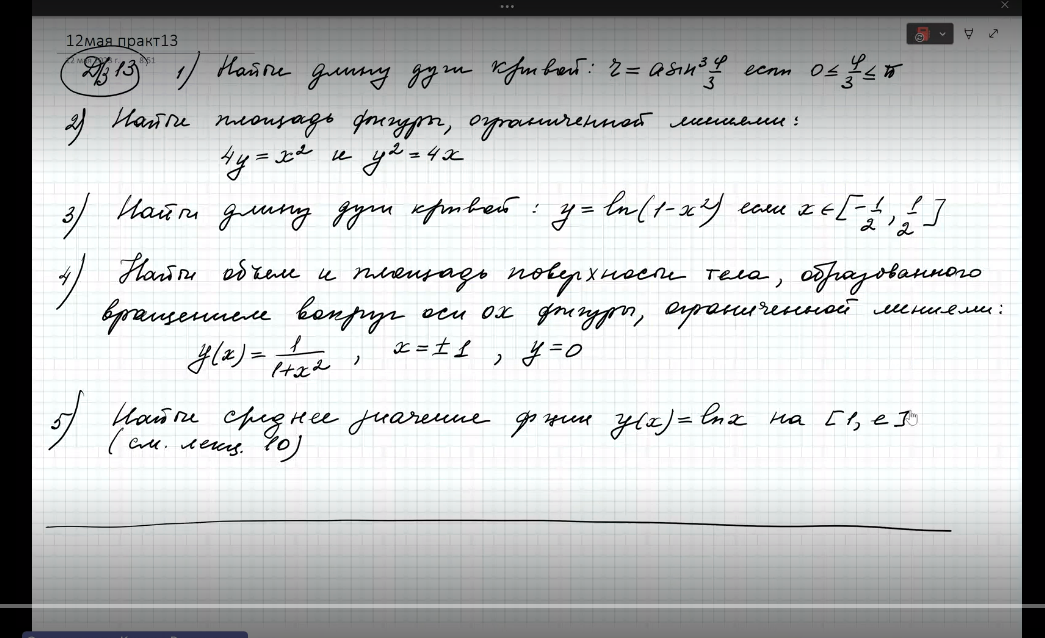 12мая практ13
ДЗ 13 1) Найти длину дуги кривой: r = a sin³ φ/3 если 0 ≤ φ/3 ≤ π
2) Найти площадь фигуры, ограниченной линиями:
4y = x² и y² = 4x
3) Найти длину дуги кривой : y = ln(1-x²) если x ∈ [-1/2, 1/2]
4) Найти объем и площадь поверхности тела, образованного
вращением вокруг оси ох фигуры, ограниченной линиями:
y(x) = 1/(1+x²) , x = ±1 , y = 0
5) Найти среднее значение ф-ции y(x) = ln x на [1, e]
(см. лекц. 10)